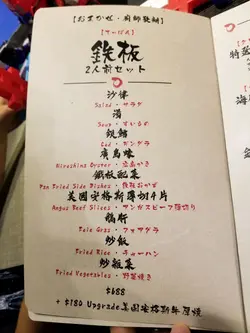 【おまかせ・廚師發辦】
【てっぱん】
鉄板
2人前セット
沙律
Salad・サラダ
湯
Soup・すいもの
銀鱈
Cod・ギンダラ
廣島蠔
Hiroshima Oyster・広島かき
鐵板配菜
Pan Fried Side Dishes・鉄板おかず
美國安格斯薄切4片
Angus Beef Slices・アンガスビーフ薄切り
鴨肝
Foie Gras・フォアグラ
炒飯
Fried Rice・チャーハン
炒雜菜
Fried Vegetables・野菜焼き
$688
+ $180 Upgrade美国安格斯牛厚燒
【
特
海